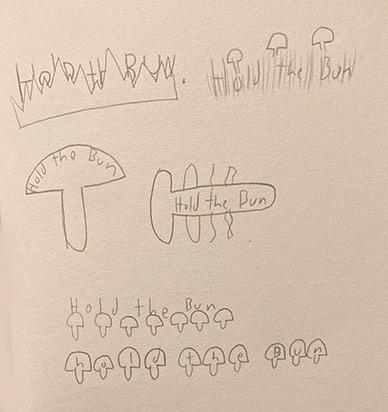 Hold the Bun.
Hold the Bun
Hold the Bun
Hold the Bun
Hold the Bun
hold the Bun